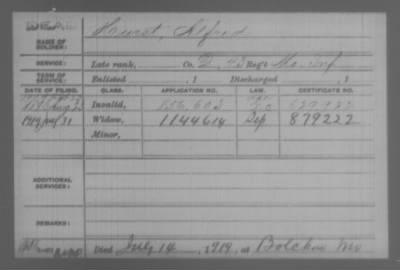 NAME OF SOLDIER: Hurst, Alfred
SERVICE: Late rank, Co. D, 43 Reg't Mo. Inf
TERM OF SERVICE: Enlisted , 1 Discharged , 1
DATE OF FILING. CLASS. APPLICATION NO. LAW. CERTIFICATE NO.
Invalid, 629922
1919 July 31 Widow, 1144614 Dep 879222
Minor,
ADDITIONAL SERVICES:
REMARKS:
Died July 14, 1919, at Bolckow Mo